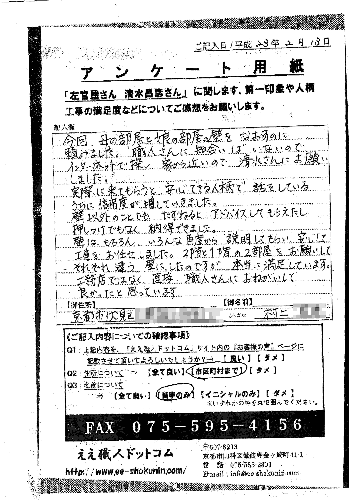 ご記入日:平成23年2月18日
アンケート用紙
「左官屋さん 清水さん」に関します、第一印象や人柄
工事の満足度などについてご感想をお願いします。
ご記入欄
今回、母の部屋と娘の部屋の壁をなおすのに
頼みました。職人さんに知合いはいないので
インターネットで探し、家から近いので、清水さんにお願い
しました。
実際に来てもらうと、安心できる人柄で、話をしている
うちに信用度が増していきました。
壁以外のことでも、たずねるとアドバイスしてもらえたし
押しつけでもなく、納得できました。
壁はもちろん、いろんな角度から説明してもらい、安心して
工事をお任せしました。2階と1階の2部屋をお願いして
それぞれ違う壁にしたのですが、本当に満足しています。
工務店ではなく、直接、職人さんにおねがいして
良かったと思っています。
【御住所】
【御名前】
京都市伏見
《ご記入内容についての確認事項》
Q1:上記内容を、「ええ職人ドットコム」サイト内の「お客様の声」ページに
記載させて頂いてよろしいでしょうか? 【良い】【ダメ】
Q2:住所について → 【全て良い】【市区町村まで】【ダメ】
Q3:名前について
→ 【全て良い】【苗字のみ】【イニシャルのみ】【ダメ】
FAX 075-595-4156
ええ職人ドットコム
http://www.ee-shokunin.com/
〒607-8213
email:info@ee-shokunin.com